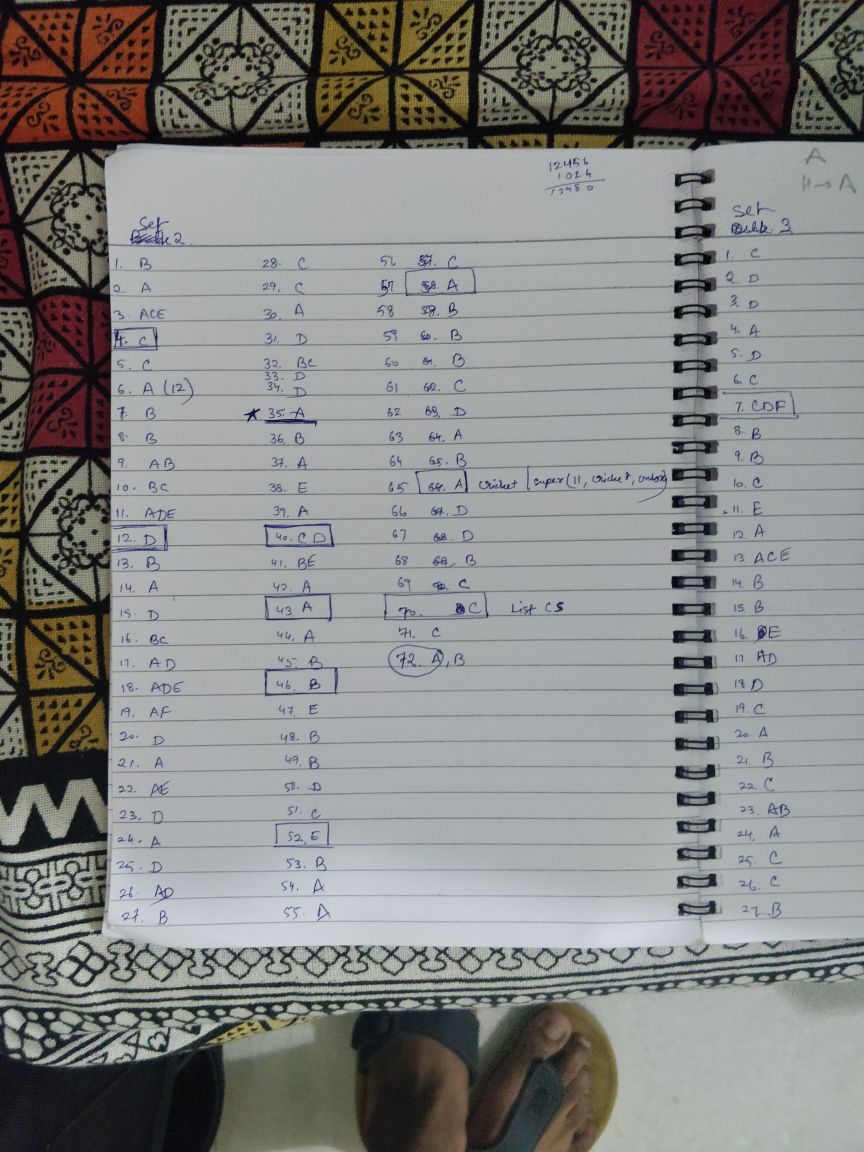 12456
1024
13480
Set
2
1. B
2. A
3. ACE
4. C
5. C
6. A (12)
7. B
8. B
9. AB
10. BC
11. ADE
12. D
13. B
14. A
15. D
16. BC
17. AD
18. ADE
19. AF
20. D
21. A
22. AE
23. D
24. A
25. D
26. AD
27. B
28. C
29. C
30. A
31. D
32. BC
33. D
34. D
35. A
36. B
37. A
38. E
39. A
40. CD
41. BE
42. A
43. A
44. A
45. B
46. B
47. E
48. B
49. B
50. D
51. C
52. E
53. B
54. A
55. A
56 57. C
57 58. A
58 59. B
59 60. B
60 61. B
61 62. C
62 63. D
63 64. A
64 65. B
65 66. A cricket super(11, cricket,
66 67. D
67 68. D
68 69. B
69 70. C
70. C List CS
71. C
72. A, B
A
4→A
Set
3
1. C
2. D
3. D
4. A
5. D
6. C
7. CDF
8. B
9. B
10. C
11. E
12. A
13. ACE
14. B
15. B
16. E
17. AD
18. D
19. C
20. A
21. B
22. C
23. AB
24. A
25. C
26. C
27. B